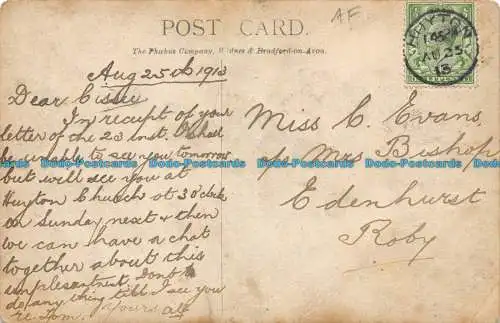 AF
POST CARD.
The Phobus Company, Widnes & Bradford-on-Avon.
HUYTON
AU 25
13
Aug 25th 1913
Dear Cissie
In reciept of your
letter of the 23 inst. I shall
be unable to see you tomorrow
but will see you at
Huyton Church at 3 o'clock
on Sunday next & then
we can have a chat
together about this
unplesantness. Dont
do any thing till I see you
re Tom. Yours
Miss C. Evans
c/o Mrs Bishop
Edenhurst
Roby
Dodo-Postcards Dodo-Postcards Dodo-Postcards Dodo-Postcards Dodo-Postcards